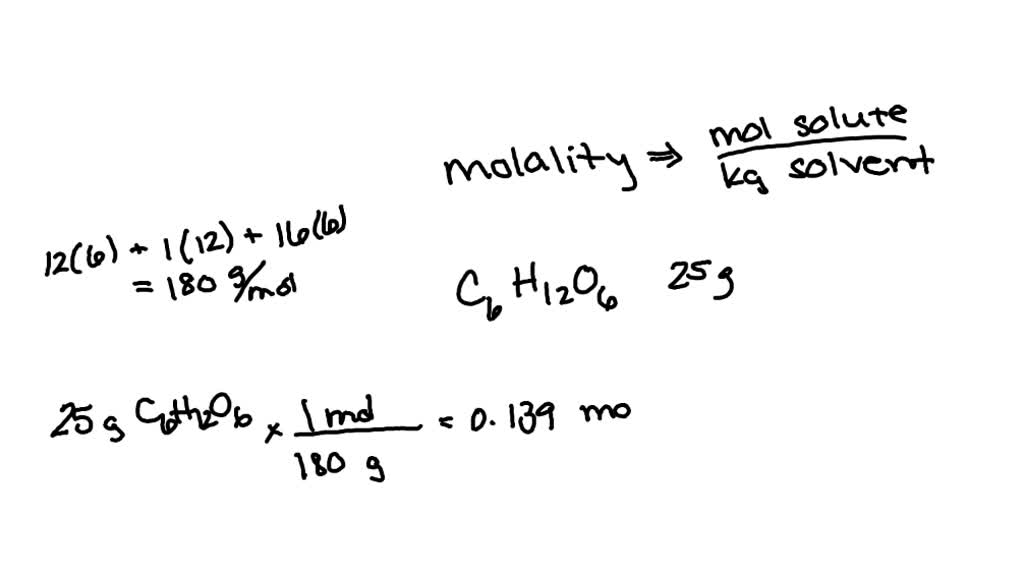 molality ⇒ mol solute / kg solvent
12(6) + 1(12) + 16(6)
= 180 g/mol
C₆H₁₂O₆ 25 g
25 g C₆H₁₂O₆ × 1 mol / 180 g = 0.139 mo